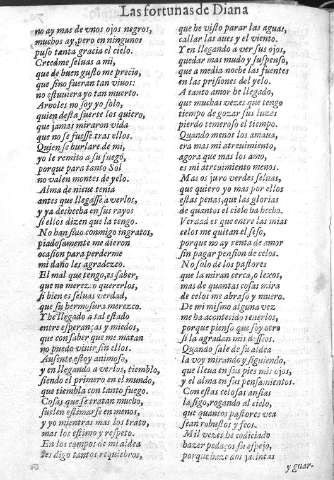 Las fortunas de Diana
no ay mas de vnos ojos negros,
muchos ay, pero en ningunos
puso tanta gracia el cielo.
Creedme seluas a mi,
que de buen gusto me precio,
que sino fueran tan viuos:
no estuuiera yo tan muerto.
Arboles no soy yo solo,
quien desta suerte los quiero,
que jamas miraron vida
que no se fuesse tras ellos.
Quien se burlare de mi,
yo le remito a su fuego,
porque para tanto Sol
no valen montes de yelo.
Alma de nieue tenia
antes que llegasse a verlos,
y ya deshecha en sus rayos
si ellos dizen que la tengo.
No han sido conmigo ingratos,
piadosamente me dieron
ocasion para perderme
mi daño les agradezco.
El mal que tengo, es saber,
que no merezco quererlos,
si bien es seluas verdad,
que su hermosura merezco.
Y he llegado a tal estado
entre esperanças y miedos,
que con saber que me matan
no puedo viuir sin ellos.
Ausente estoy animoso,
y en llegando a verlos, tiemblo,
siendo el primero en el mundo,
que tiembla con tanto fuego.
Cosas que se tratan mucho,
suelen estimarse en menos,
y yo mientras mas los trato,
mas los estimo y respeto.
En los campos de mi aldea
les digo tantos requiebros,
que he visto parar las aguas,
callar las aues y el viento.
Y en llegando a ver sus ojos,
quedar mas mudo y suspenso,
que a media noche las fuentes
en las prisiones del yelo.
A tanto amor he llegado,
que muchas vezes que tengo
tiempo de gozar sus luzes
pierdo temeroso el tiempo.
Quando menos los amaua,
era mas mi atreuimiento,
agora que mas los amo,
es mi atreuimiento menos.
Mas os juro verdes seluas,
que quiero yo mas por ellos
estas penas, que las glorias
de quantos el cielo ha hecho.
Verdad es que entre las mias
celos me quitan el seso,
porque no ay renta de amor
sin pagar pension de celos.
No solo de los pastores
que la miran cerca, o lexos,
mas de quantas cosas mira
de celos me abraso y muero.
De mi mismo alguna vez
me ha acontecido tenerlos,
porque pienso que soy otro
si la agradan mis desseos.
Quando sale de su aldea
la voy mirando y siguiendo,
que lleua en sus pies mis ojos,
y el alma en sus pensamientos.
Con estas celosas ansias
la sigo, rogando al cielo,
que quantos pastores vea
sean robustos y feos.
Mil vezes he codiciado
hazer pedaços su espejo,
porque haze dos
y guar-